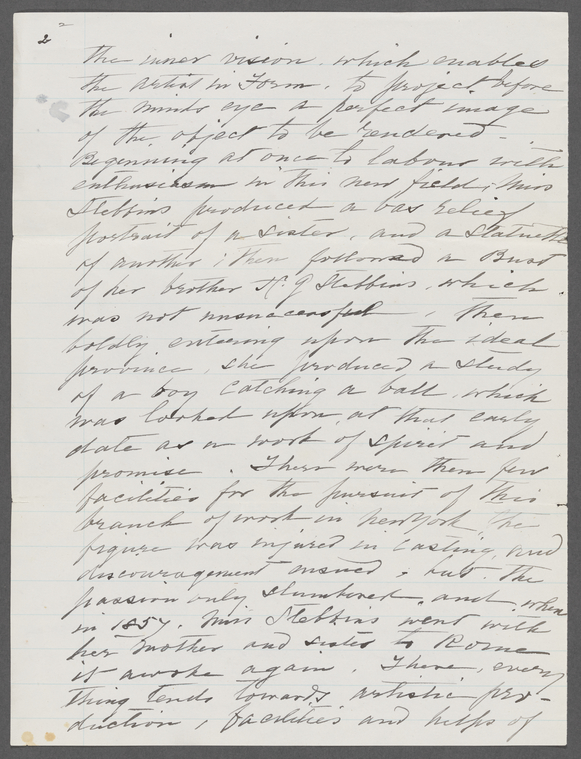 2 2
the inner vision, which enables
the artist in Form, to project before
the minds eye a perfect image
of the object to be rendered -
Beginning at once to labour with
enthusiasm in this new field, Miss
Stebbins produced a bas relief
portrait of a sister, and a statuette
of another; then followed a Bust
of her brother H. G Stebbins, which
was not unsuccessful, then
boldly entering upon the ideal
province, she produced a study
of a boy catching a ball, which
was looked upon, at that early
date as a work of spirit and
promise. There were then few
facilities for the pursuit of this
branch of work in New York, the
figure was injured in casting, and
discouragement ensued, but the
passion only slumbered, and when
in 1857. Miss Stebbins went with
her mother and sister to Rome
it awoke again. There, every
thing tends towards artistic pro-
duction, facilities and helps of